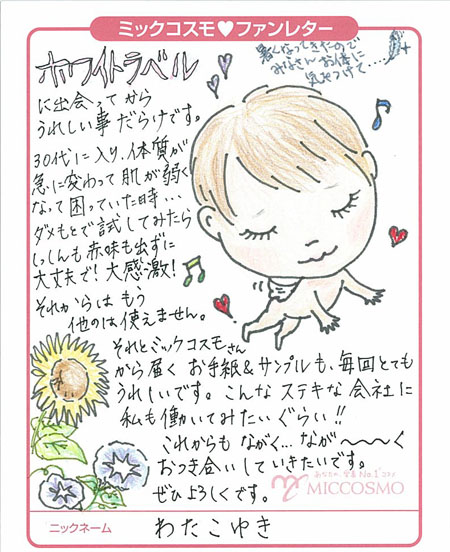 ミックコスモ♥ファンレター
暑くなってきたので
みなさんお体に
気をつけて…
ホワイトラベル
に出会ってから
うれしい事だらけです。
30代に入り、体質が
急に変わって肌が弱く
なって困っていた時…
ダメもとで試してみたら
しっしんも赤味も出ずに
大丈夫で!大感激!
それからはもう
他のは使えません。
それとミックコスモさん
から届くお手紙&サンプルも、毎回とても
うれしいです。こんなステキな会社に
私も働いてみたいぐらい!!
これからもながく…なが〜〜く
おつき合いしていきたいです。
ぜひよろしくです。
MICCOSMO
ニックネーム
わたこゆき